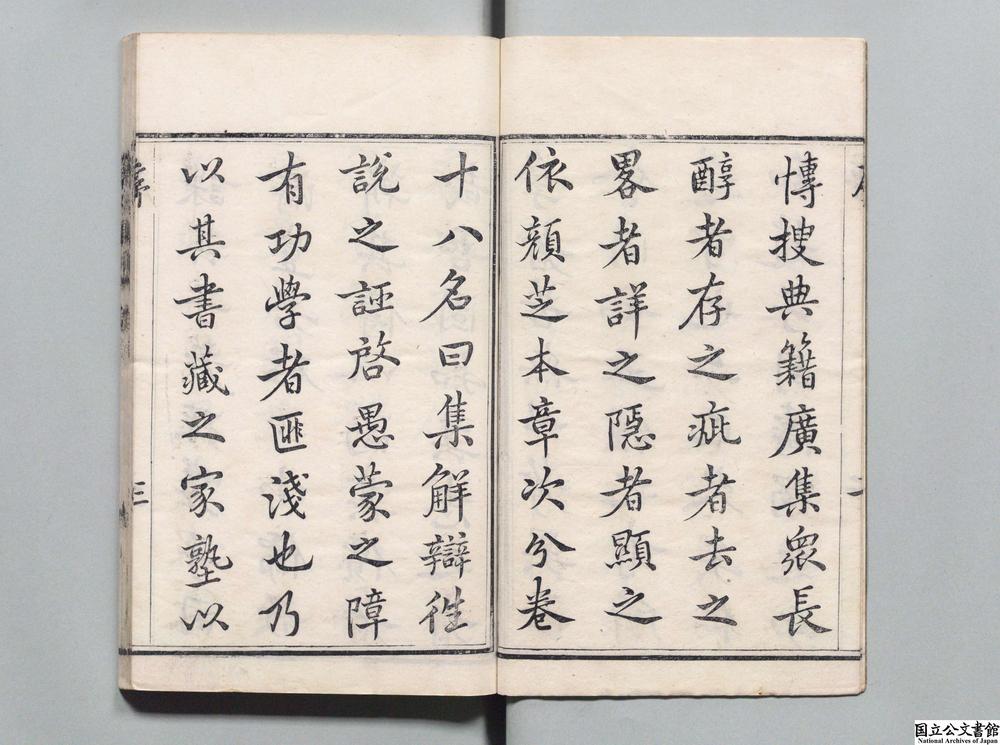 博搜典籍廣集衆長
醇者存之疵者去之
畧者詳之隱者顯之
依顔芝本章次分卷
十八名曰集解辯徃
說之誣啓愚蒙之障
有功學者匪淺也乃
以其書藏之家塾以
序
三
国立公文書館
National Archives of Japan